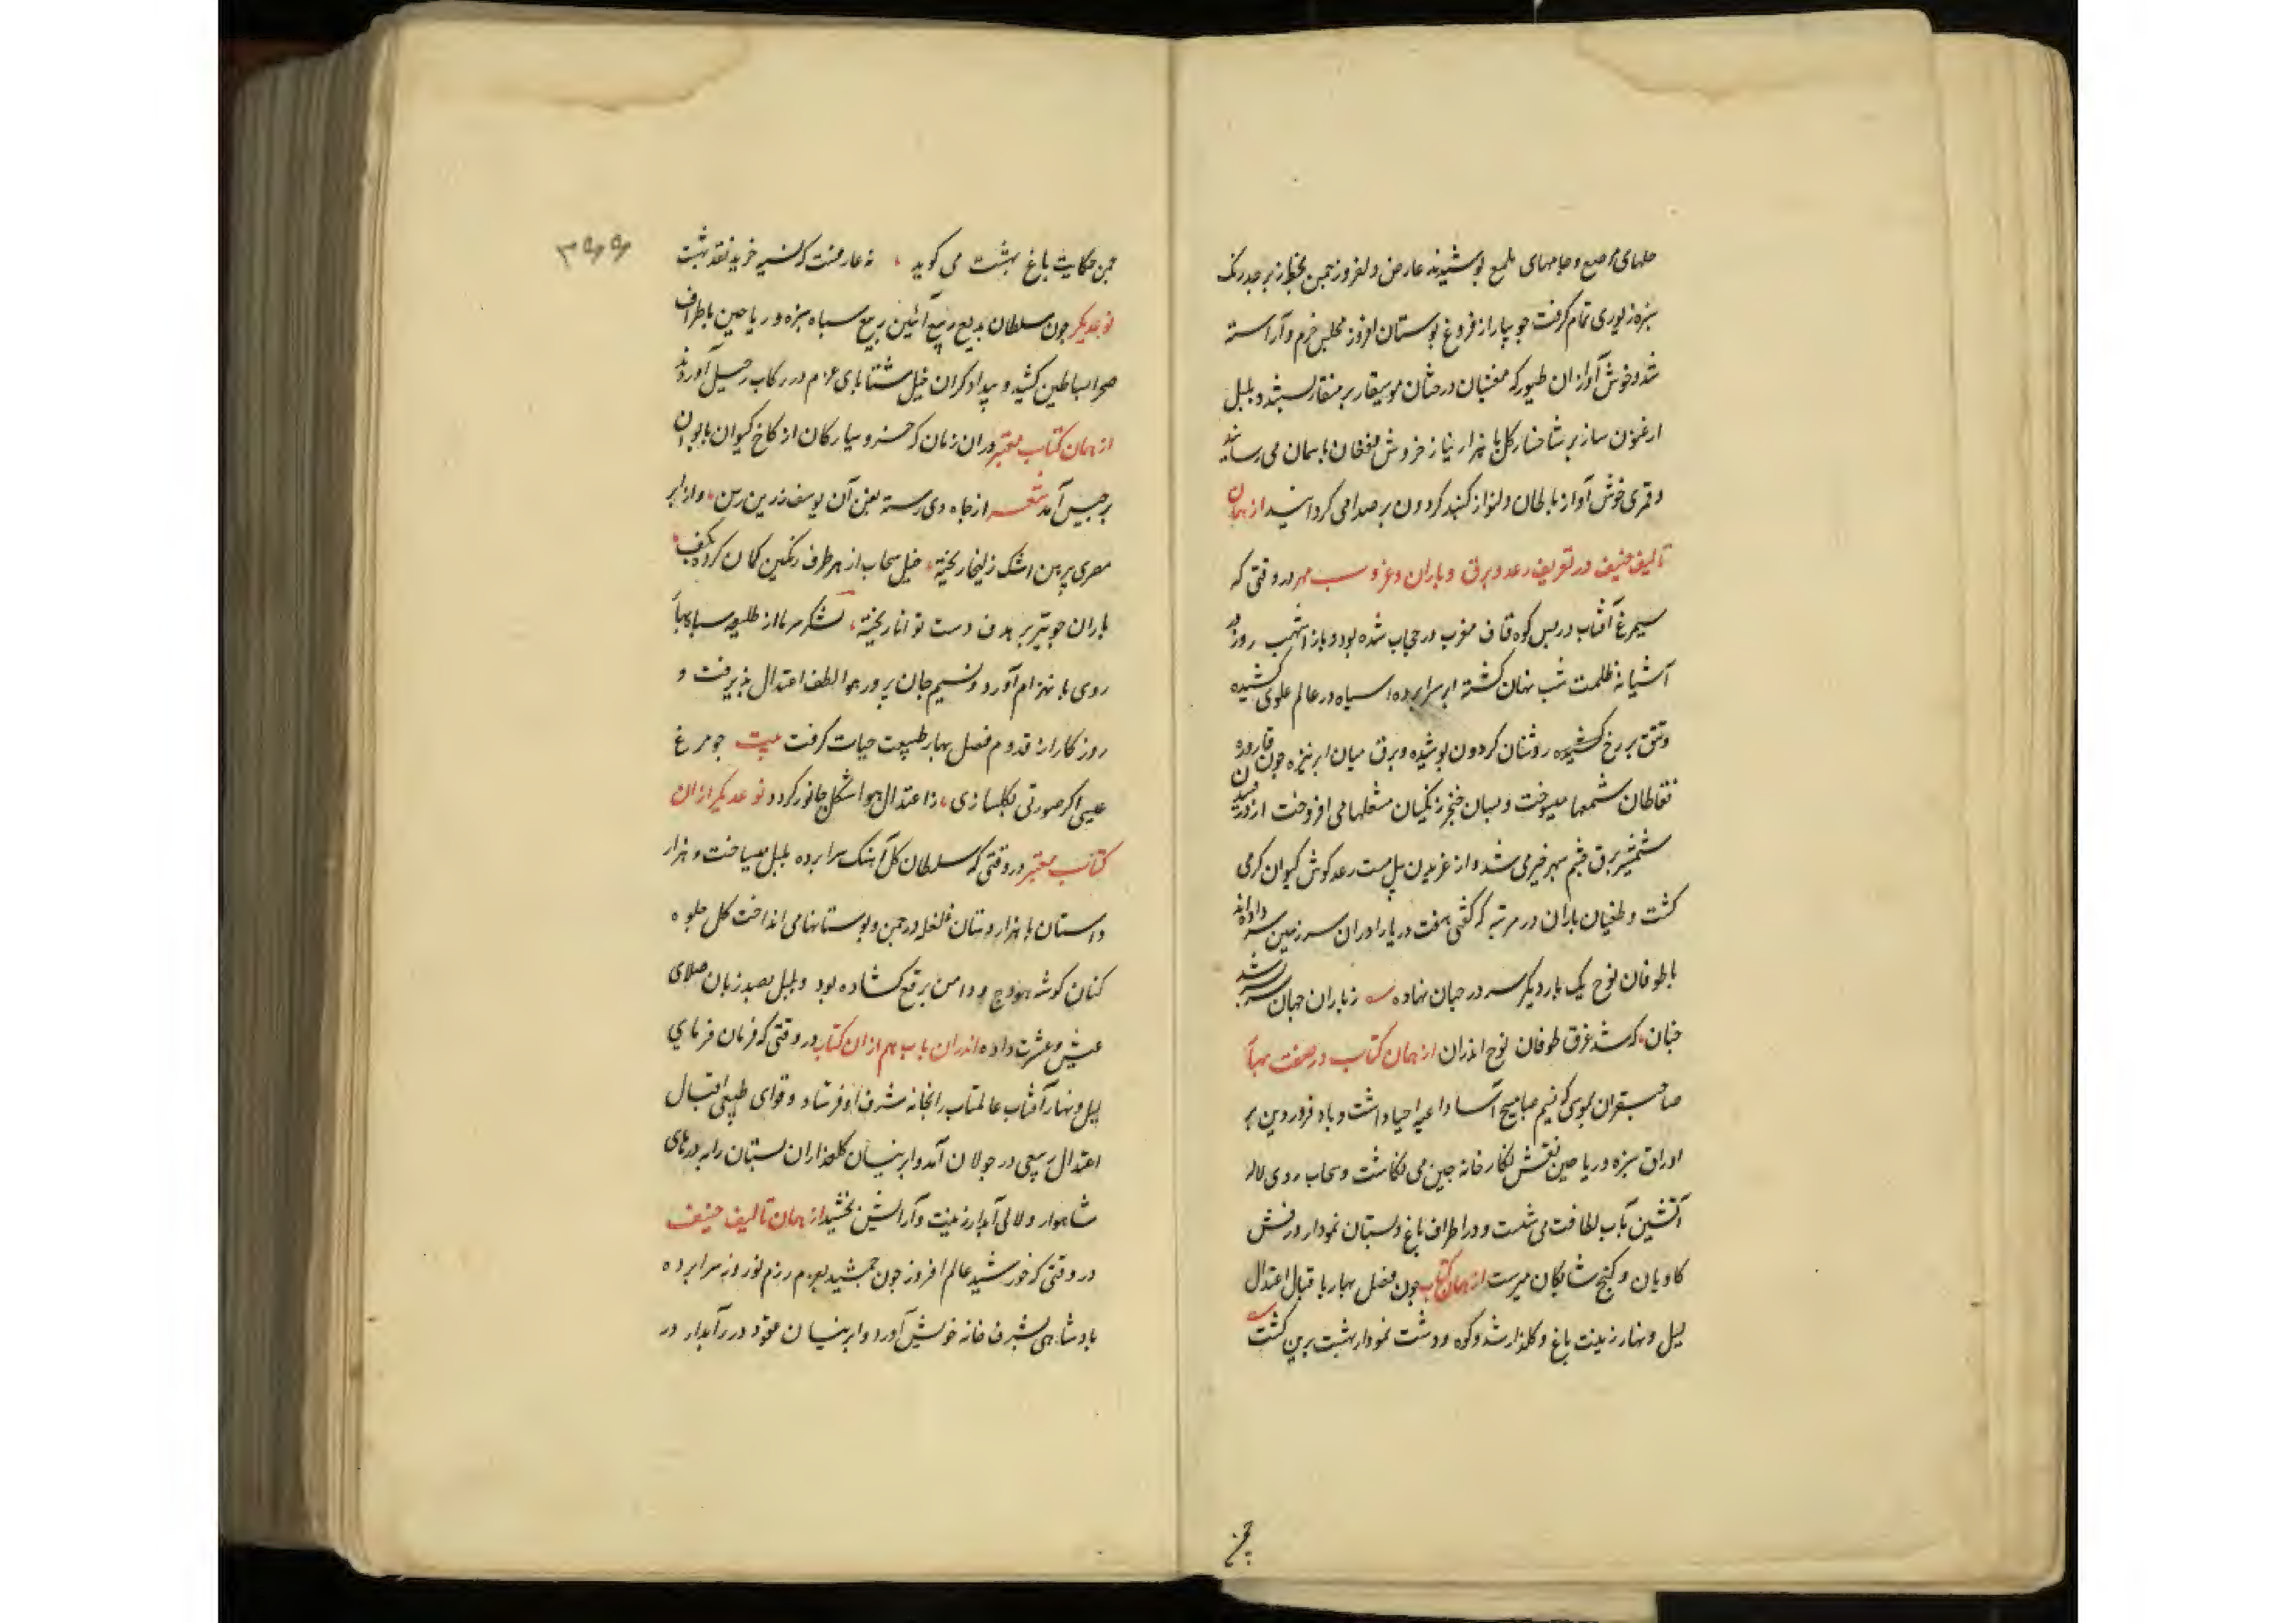 حلهای مرصع و جامهای ملمع پوشیدند عارض دلفروز چمن بخط زبرجد رنک
سبزه زیوری تمام کرفت جویبار از فروغ بوستان افروز مجلس خرم و آراسته
شد و خوش آوازان طیور که مغنیان درختان موسیقار بر منقار بستند و بلبل
ارغنون ساز بر شاخسار کل با هزار نیاز خروش و فغان باسمان می رسانید
و قمری خوش آواز بالحان دلنواز کنبد کردون پر صدا می کردانید از همان
تالیف حنیف در تعریف رعد و برق و باران و غروب مهر در وقتی که
سیمرغ آفتاب در پس کوه قاف مغرب در حجاب شده بود و باز اشهب روز در
آشیانه ظلمت شب نهان کشته ابر سراپرده سیاه در عالم علوی کشیده
وتتق بر رخ روشنان کردون پوشیده و برق میان ابر تیره چون قاروره
نفاطان شمعها میسوخت و بسان خنجر زنکیان مشعلها می افروخت از درخشیدن
شمشیر برق چشم سپهر خیره می شد و از غریدن پیل مست رعد کوش کیوان کر می
کشت و طغیان باران در مرتبه که کفتی هفت دریا را در ان سرزمین سر داده اند
یا طوفان نوح یک بار دیکر سر در جهان نهاده ز باران جهان سر بسر شد
چنان که شد غرق طوفان نوح اندران از همان کتاب در صفت بهار
صاحبقران کیوسی که نسیم صبا مسیح آسا داعیه احیا داشت و باد فروردین بر
اوراق سبزه و ریاحین نقش نکارخانه چین می نکاشت و سحاب روی لاله
آتشین بآب لطافت می شست و در اطراف باغ و بستان نمودار درفش
کاویان و کنج شایکان میرست از همان کتاب چون فصل بهار با قبال اعتدال
لیل و نهار زینت باغ و کلزار شد و کوه و دشت نمودار بهشت برین کشت
چمن
۳۹۹
چمن حکایت باغ بهشت می کوید نه عارفست که نسیه خرید نقد بهشت
نوعدیکر چون سلطان بدیع ربیع آئین ربیع سپاه سبزه و ریاحین باطراف
صحرا بساطین کشید و بیدادکران خیل شتا پای عزم در رکاب رحیل آوردند
از همان کتاب معتبر دران زمان که خسرو سیارکان از کاخ کیوان بایوان
برجیس آمد شعر از چاه دی رسته بفن آن یوسف زرین رسن وز ابر
مصری پیرهن اشک زلیخا ریخته خیل سحاب از هر طرف رنکین کمان کرده بکف
باران چو تیر بر هدف دست توانا ریخته لشکر سرما از طلیعه سپاه بهار
روی بانهزام آورد و نسیم جان پرور هوا لطف اعتدال پذیرفت و
روزکار از قدوم فصل بهار طبیعت حیات کرفت بیت چو مرغ
عیسی اکر صورتی بکلسازی ز اعتدال هوا شکل جانور کردد نوعدیکر ازان
کتاب معتبر در وقتی که سلطان کل آهنک سراپرده بلبل میساخت و هزار
داستان با هزار دستان غلغله در چمن و بوستانها می انداخت کل جلوه
کنان کوشه هودج و دامن برقع کشاده بود و بلبل بصد زبان صلای
عیش و عشرت داده اندران باب هم ازان کتاب در وقتی که فرمان فرمای
لیل و نهار آفتاب عالمتاب را بخانه شرف او فرستاد و قوای طبیعی اقبال
اعتدال ربیعی در جولان آمد و ابر نیسان کلعذاران بستان را به درهای
شاهوار و لالی آبدار زینت و آرایش بخشید از همان تالیف حنیف
در وقتی که خورشید عالم افروز چون جمشید بعزم رزم نوروز سراپرده
پادشاهی بشرف خانه خویش آورد و ابر نیسان عقود درر آبدار در